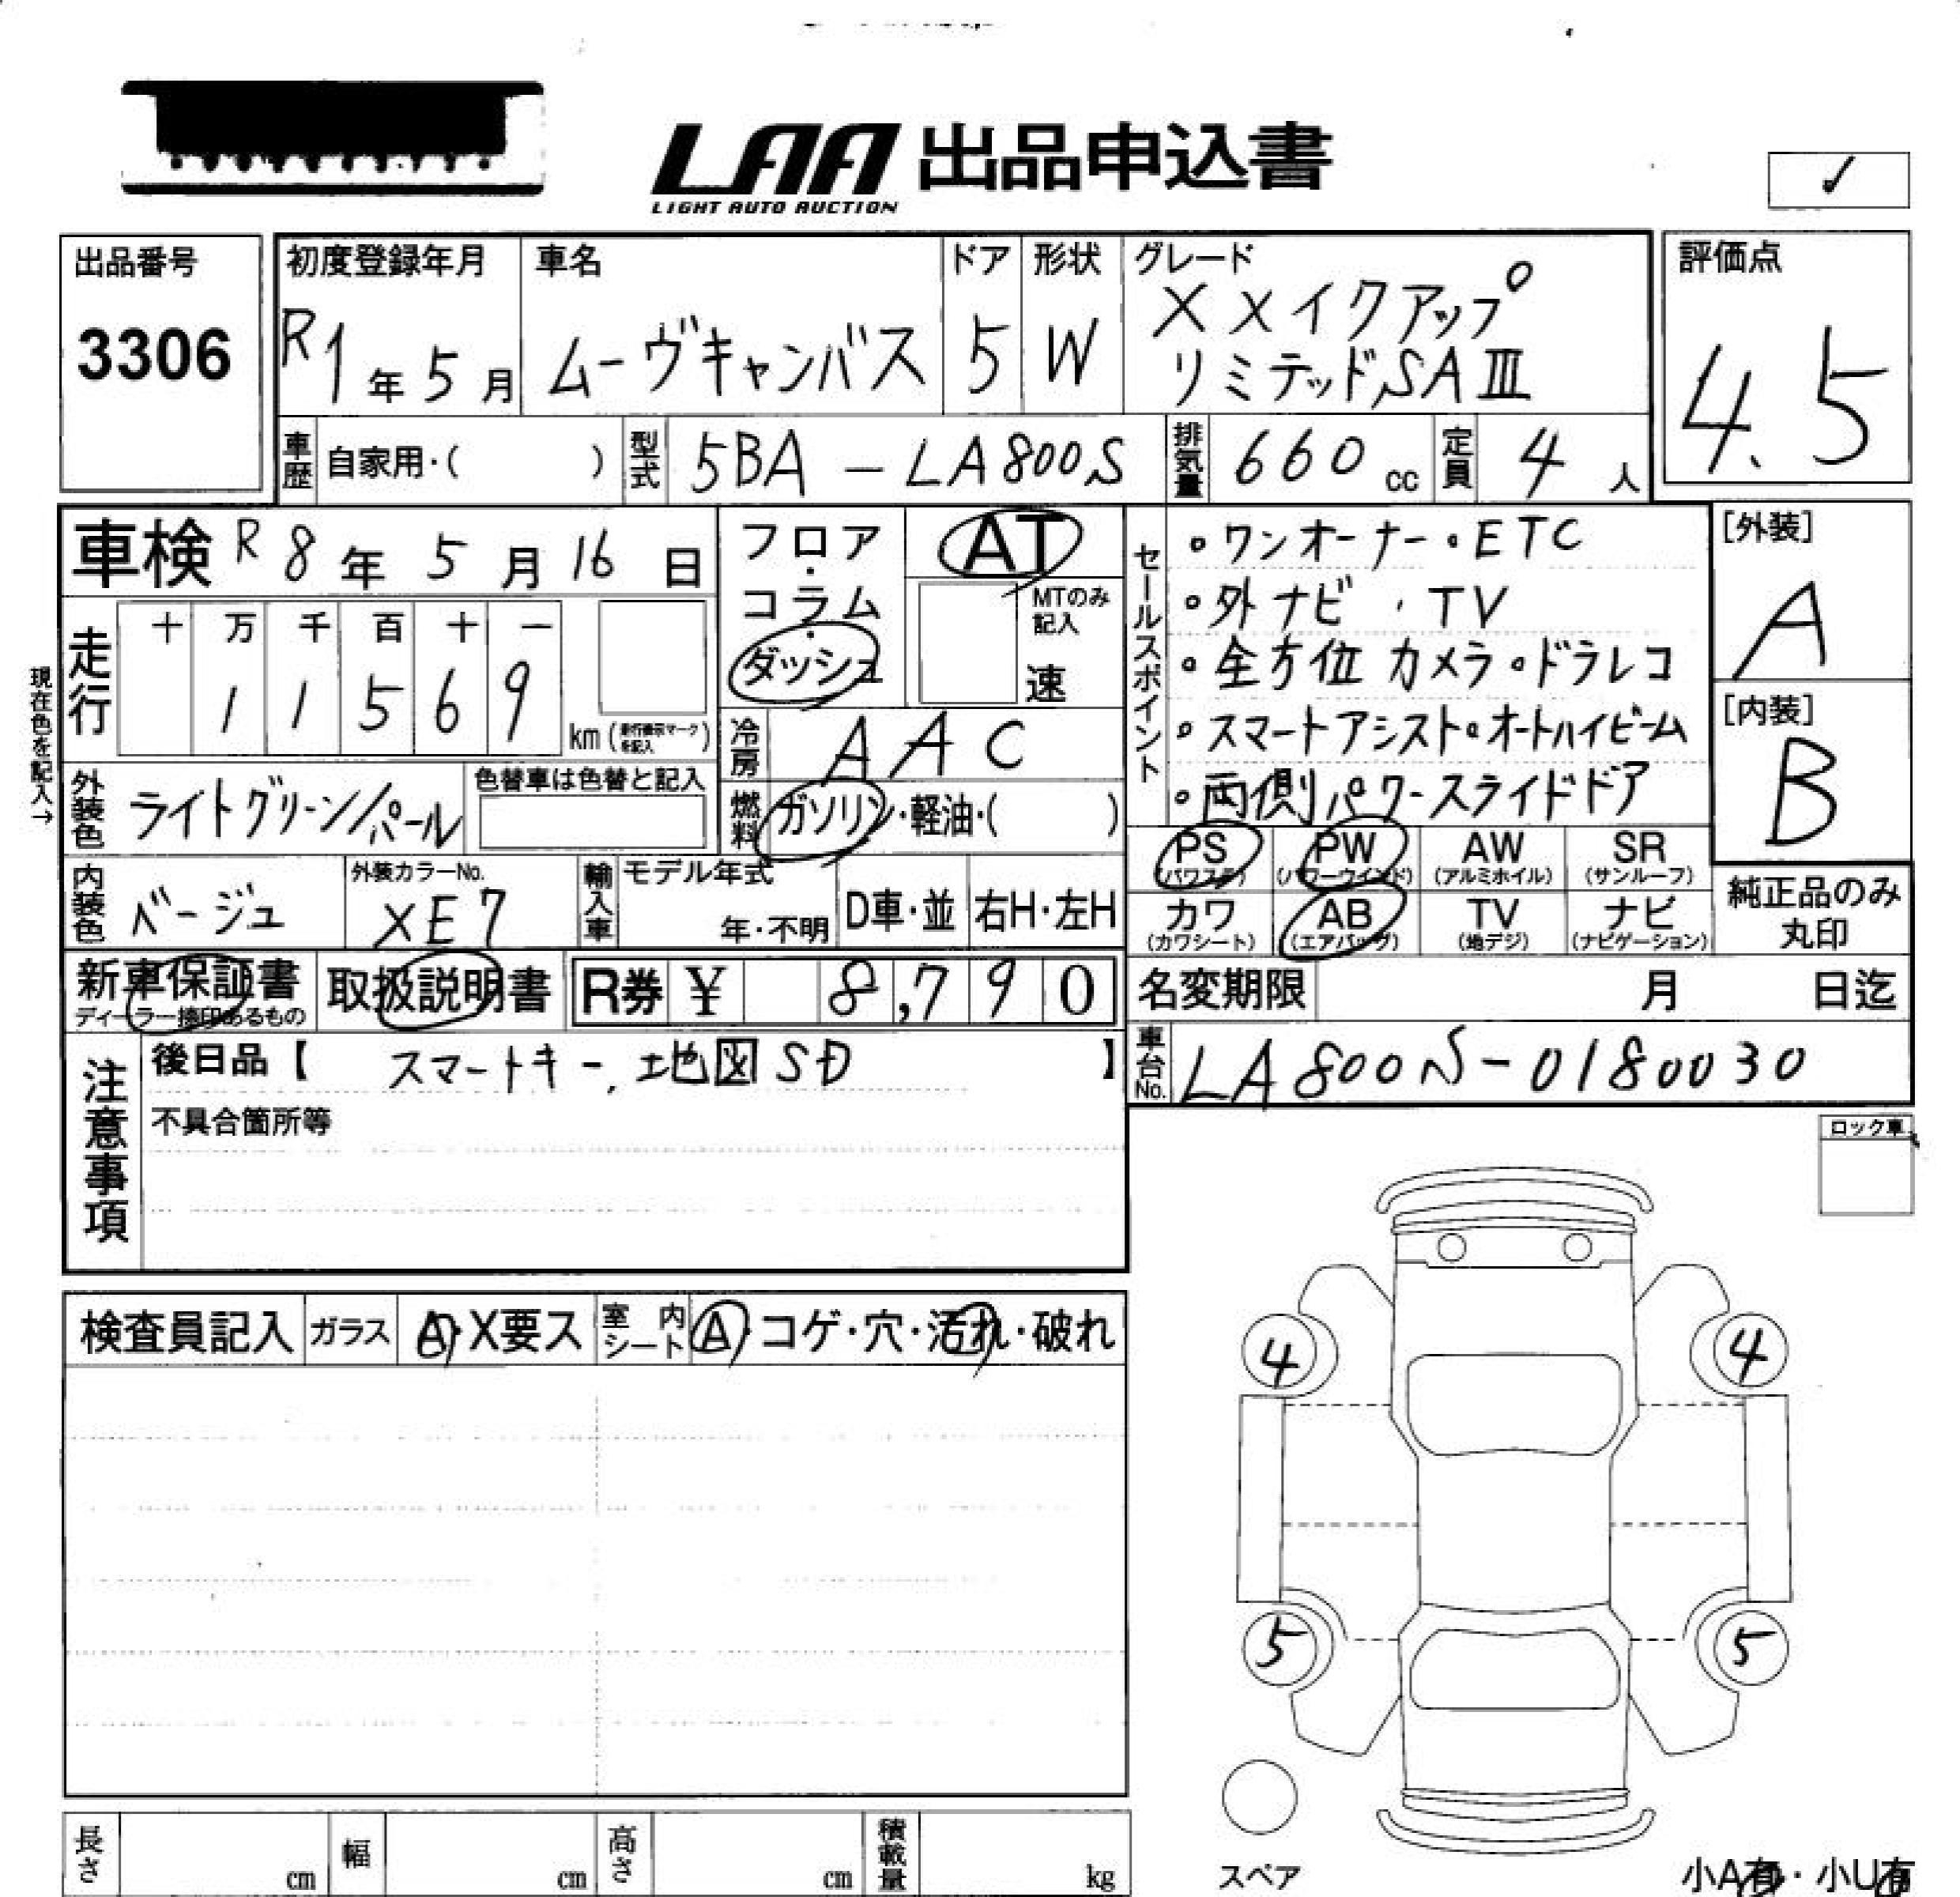 LAA 出品申込書
LIGHT AUTO AUCTION
✓
出品番号
3306
初度登録年月
R1年5月
車名
ムーヴキャンバス
ドア
5
形状
W
グレード
Xメイクアップ
リミテッドSAⅢ
評価点
4.5
車歴 自家用・( )
型式 5BA-LA800S
排気量 660cc
定員 4人
車検 R8年5月16日
フロア・コラム・ダッシュ
AT
MTのみ記入
速
走行
十 万 千 百 十 一
1 1 5 6 9
km (走行表示マークを記入)
現在色を記入→
冷房 AAC
外装色 ライトグリーン/パール
色替車は色替と記入
燃料 ガソリン・軽油・( )
内装色 ベージュ
外装カラーNo.
XE7
輸入車
モデル年式
年・不明
D車・並
右H・左H
セールスポイント
・ワンオーナー・ETC
・外ナビ・TV
・全方位カメラ・ドラレコ
・スマートアシスト・オートハイビーム
・両側パワースライドドア
[外装]
A
[内装]
B
PS (パワステ)
PW (パワーウインド)
AW (アルミホイル)
SR (サンルーフ)
カワ (カワシート)
AB (エアバッグ)
TV (地デジ)
ナビ (ナビゲーション)
純正品のみ
丸印
新車保証書
ディーラー捺印あるもの
取扱説明書
R券 ¥ 8,790
名変期限 月 日迄
車台No. LA800S-0180030
注意事項
後日品【 スマートキー、地図SD 】
不具合箇所等
ロック車
検査員記入
ガラス A・X要ス
室内シート A・コゲ・穴・汚れ・破れ
4
4
5
5
スペア
長さ cm
幅 cm
高さ cm
積載量 kg
小A有・小U有